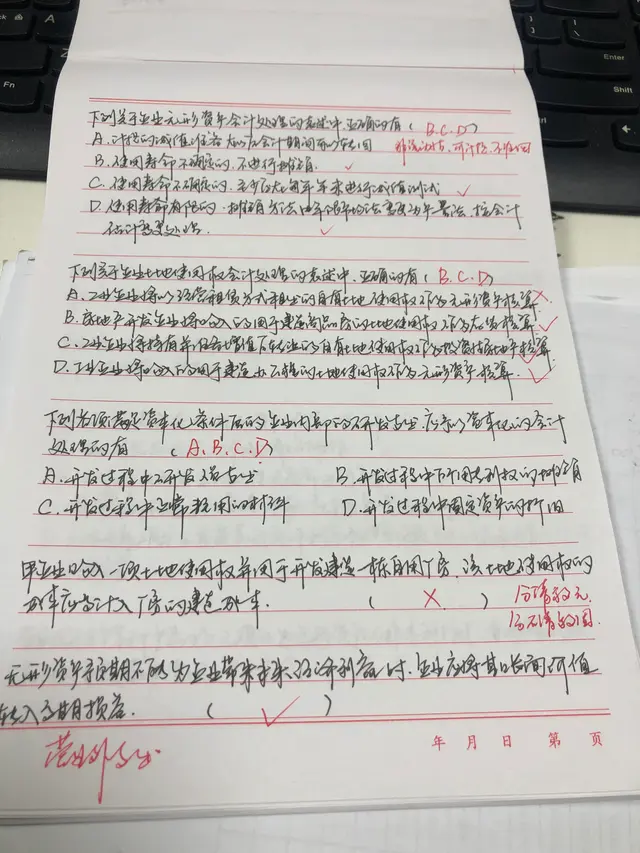 下列关于企业无形资产会计处理的表述中,正确的有( B.C.D )
A.计提的减值准备在以后会计期间可以转回
B.使用寿命不确定的,不进行摊销 ✓
C.使用寿命不确定的,至少应在每年年末进行减值测试 ✓
D.使用寿命有限的,摊销方法由年限平均法变更为产量法,按会计
估计变更处理. ✓
下列关于企业土地使用权会计处理的表述中,正确的有( B.C.D )
A.工业企业将以经营租赁方式租出的自有土地使用权作为无形资产核算 ×
B.房地产开发企业将购入的用于建造商品房的土地使用权作为存货核算 ✓
C.工业企业将持有并准备增值后转让的自有土地使用权作为投资性房地产核算 ✓
D.工业企业将购入的用于建造办公楼的土地使用权作为无形资产核算. ✓
下列各项满足资本化条件后的企业内部的研发支出,应予以资本化的会计
处理的有 ( A.B.C.D )
A.开发过程中研发人员支出 B.开发过程中所用专利权的摊销
C.开发过程中正常耗用的材料 D.开发过程中固定资产的折旧
甲企业购入一项土地使用权并用于开发建造一栋自用厂房,该土地使用权的
成本应当计入厂房的建造成本. ( × )
分清无
分不清固
无形资产预期不能为企业带来未来经济利益时,企业应将其账面价值
转入当期损益. ( ✓ )
营业外支出
年 月 日 第 页
Enter
Shift
Fn
Z
A